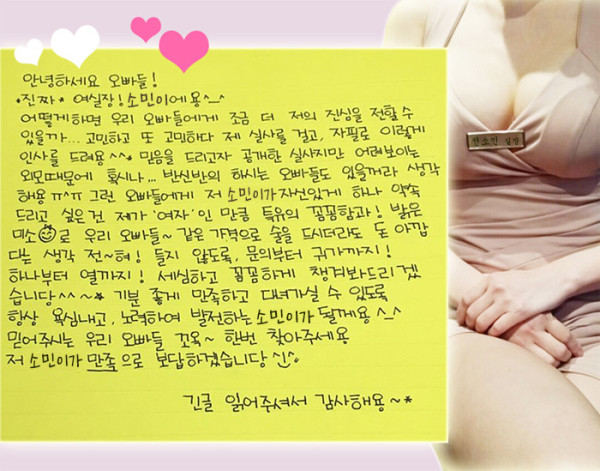 안녕하세요 오빠들!
*진짜* 여실장! 소민이에용^_^
어떻게 하면 우리 오빠들에게 조금 더 저의 진심을 전할 수
있을까... 고민하고 또 고민하다 제 실사를 걸고, 자필로 이렇게
인사를 드려용 ^^* 믿음을 드리고자 공개한 실사지만 어려보이는
외모때문에 혹시나... 반신반의 하시는 오빠들도 있을꺼라 생각
해용 ㅠ^ㅠ 그런 오빠들에게 저 소민이가 자신있게 하나 약속
드리고 싶은건 제가 '여자' 인 만큼 특유의 꼼꼼함과! 밝은
미소로 우리 오빠들~ 같은 가격으로 술을 드시더라도 돈 아깝
다는 생각 전~혀! 들지 않도록, 문의부터 귀가까지!
하나부터 열까지! 세심하고 꼼꼼하게 챙겨봐드리겠
습니다^^~* 기분 좋게 만족하고 다녀가실 수 있도록
항상 욕심내고, 노력하여 발전하는 소민이가 될게용 ^_^
믿어주시는 우리 오빠들 꼬옥~ 한번 찾아주세용
저 소민이가 만족으로 보답하겠습니당
긴글 읽어주셔서 감사해용~*
실장